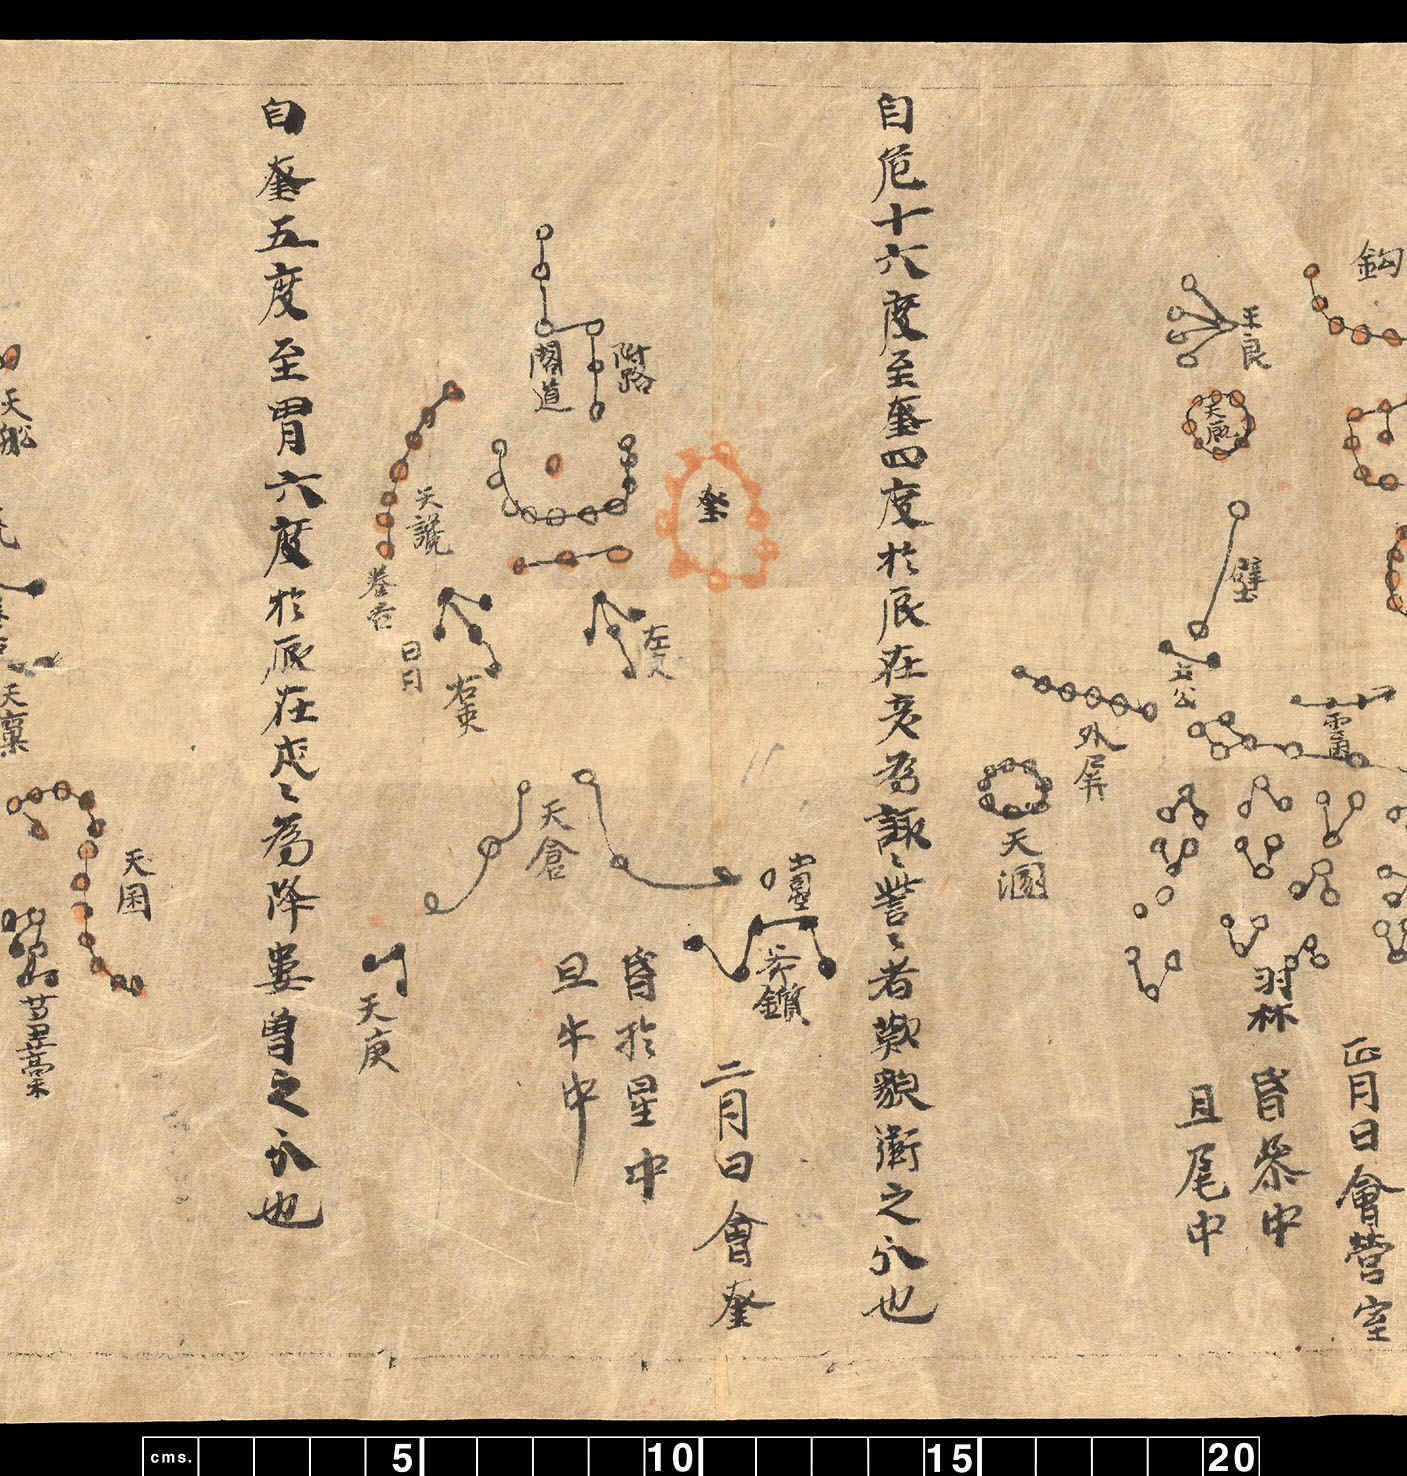 鈎
王良
天厩
壁
土公
雷電
外屏
天溷
羽林
正月日會營室
昏參中
旦尾中
自危十六度至奎四度於辰在亥為諏〻訾〻者歎貌衛之分也
附路
閣道
奎
左更
天倉
土司空
斧鑕
二月日會奎
昏於星中
旦牛中
天讒
卷舌
日月
右更
天庾
自奎五度至胃六度於辰在戌〻為降婁魯之分也
天舩
天廩
天囷
芻藁